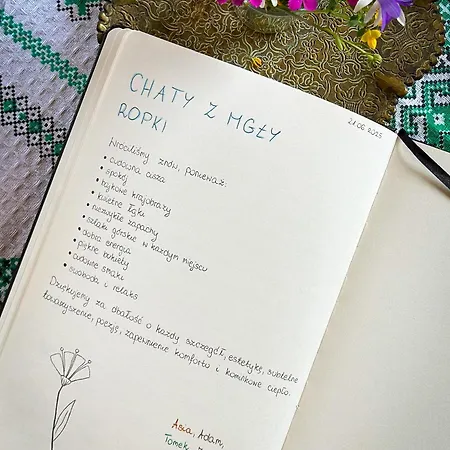 CHATY Z MGŁY
ROPKI
21.06.2025
Wróciliśmy znów, ponieważ:
• cudowna cisza
• spokój
• bajkowe krajobrazy
• kwietne łąki
• niezwykłe zapachy
• szlaki górskie w każdym miejscu
• dobra energia
• piękne bukiety
• cudowne smaki
• swoboda i relaks
Dziękujemy za dbałość o każdy szczegół, estetykę, subtelne
towarzyszenie, poezję, zapewnienie komfortu i kominkowe ciepło.
Asia, Adam,
Tomek,